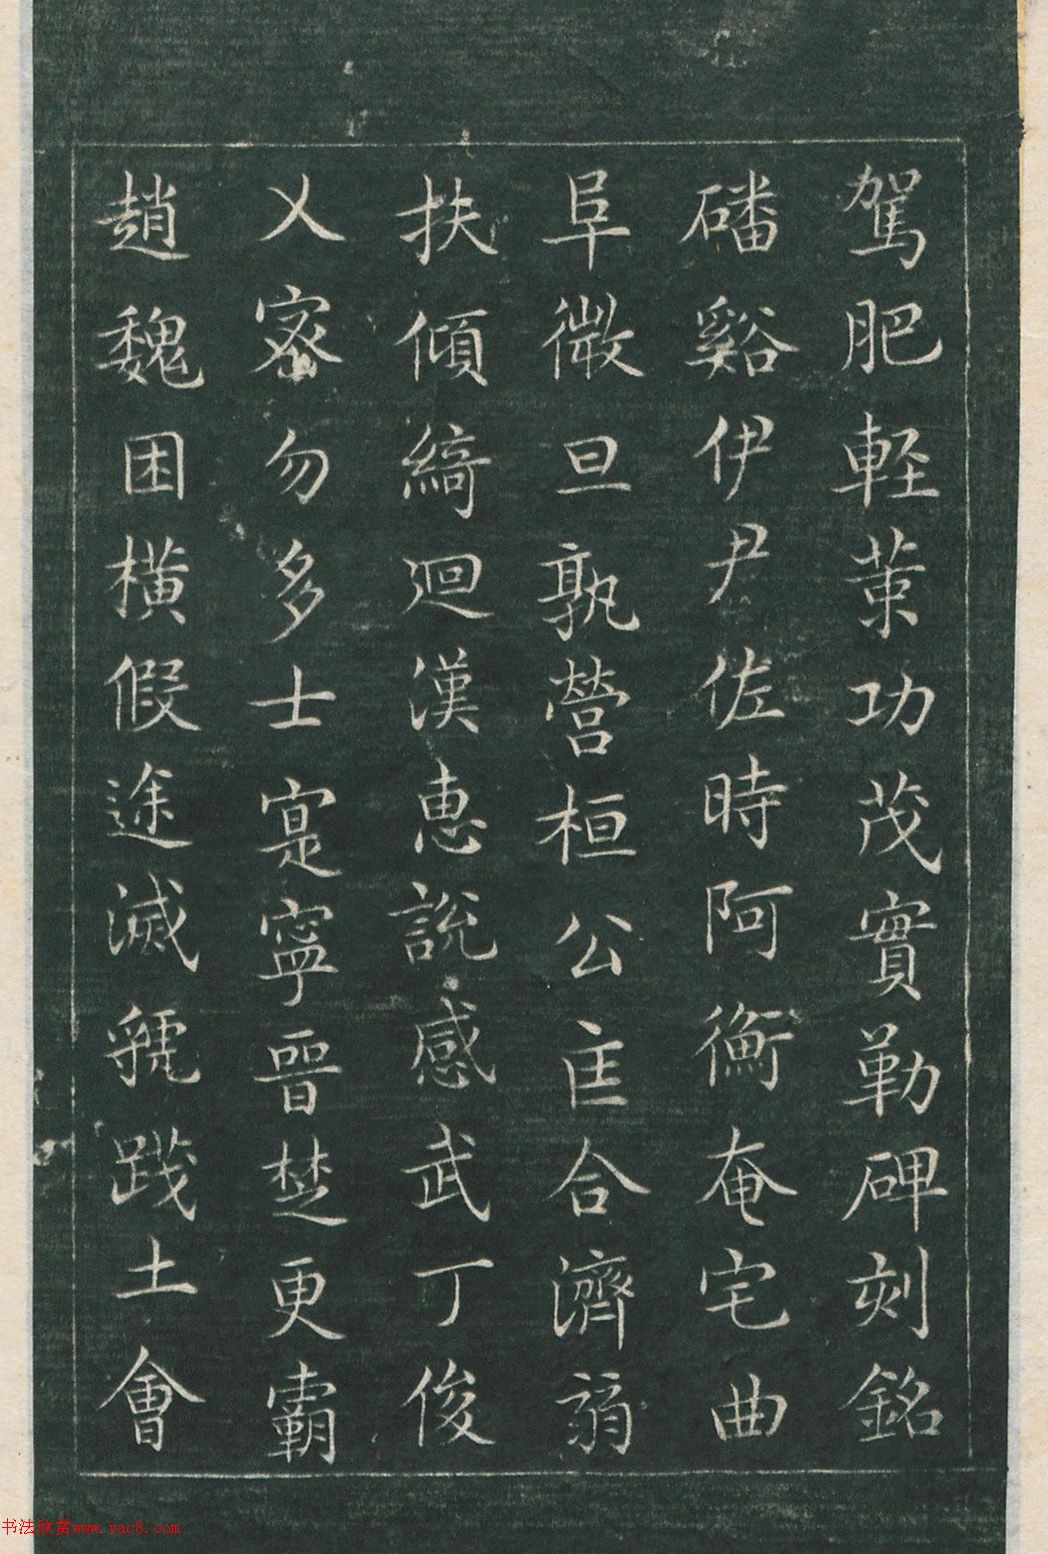 駕肥輕策功茂實勒碑刻銘
磻谿伊尹佐時阿衡奄宅曲
阜微旦孰營桓公匡合濟弱
扶傾綺迴漢惠說感武丁俊
乂密勿多士寔寧晉楚更霸
趙魏困橫假途滅虢踐土會
书法欣赏www.yac8.com